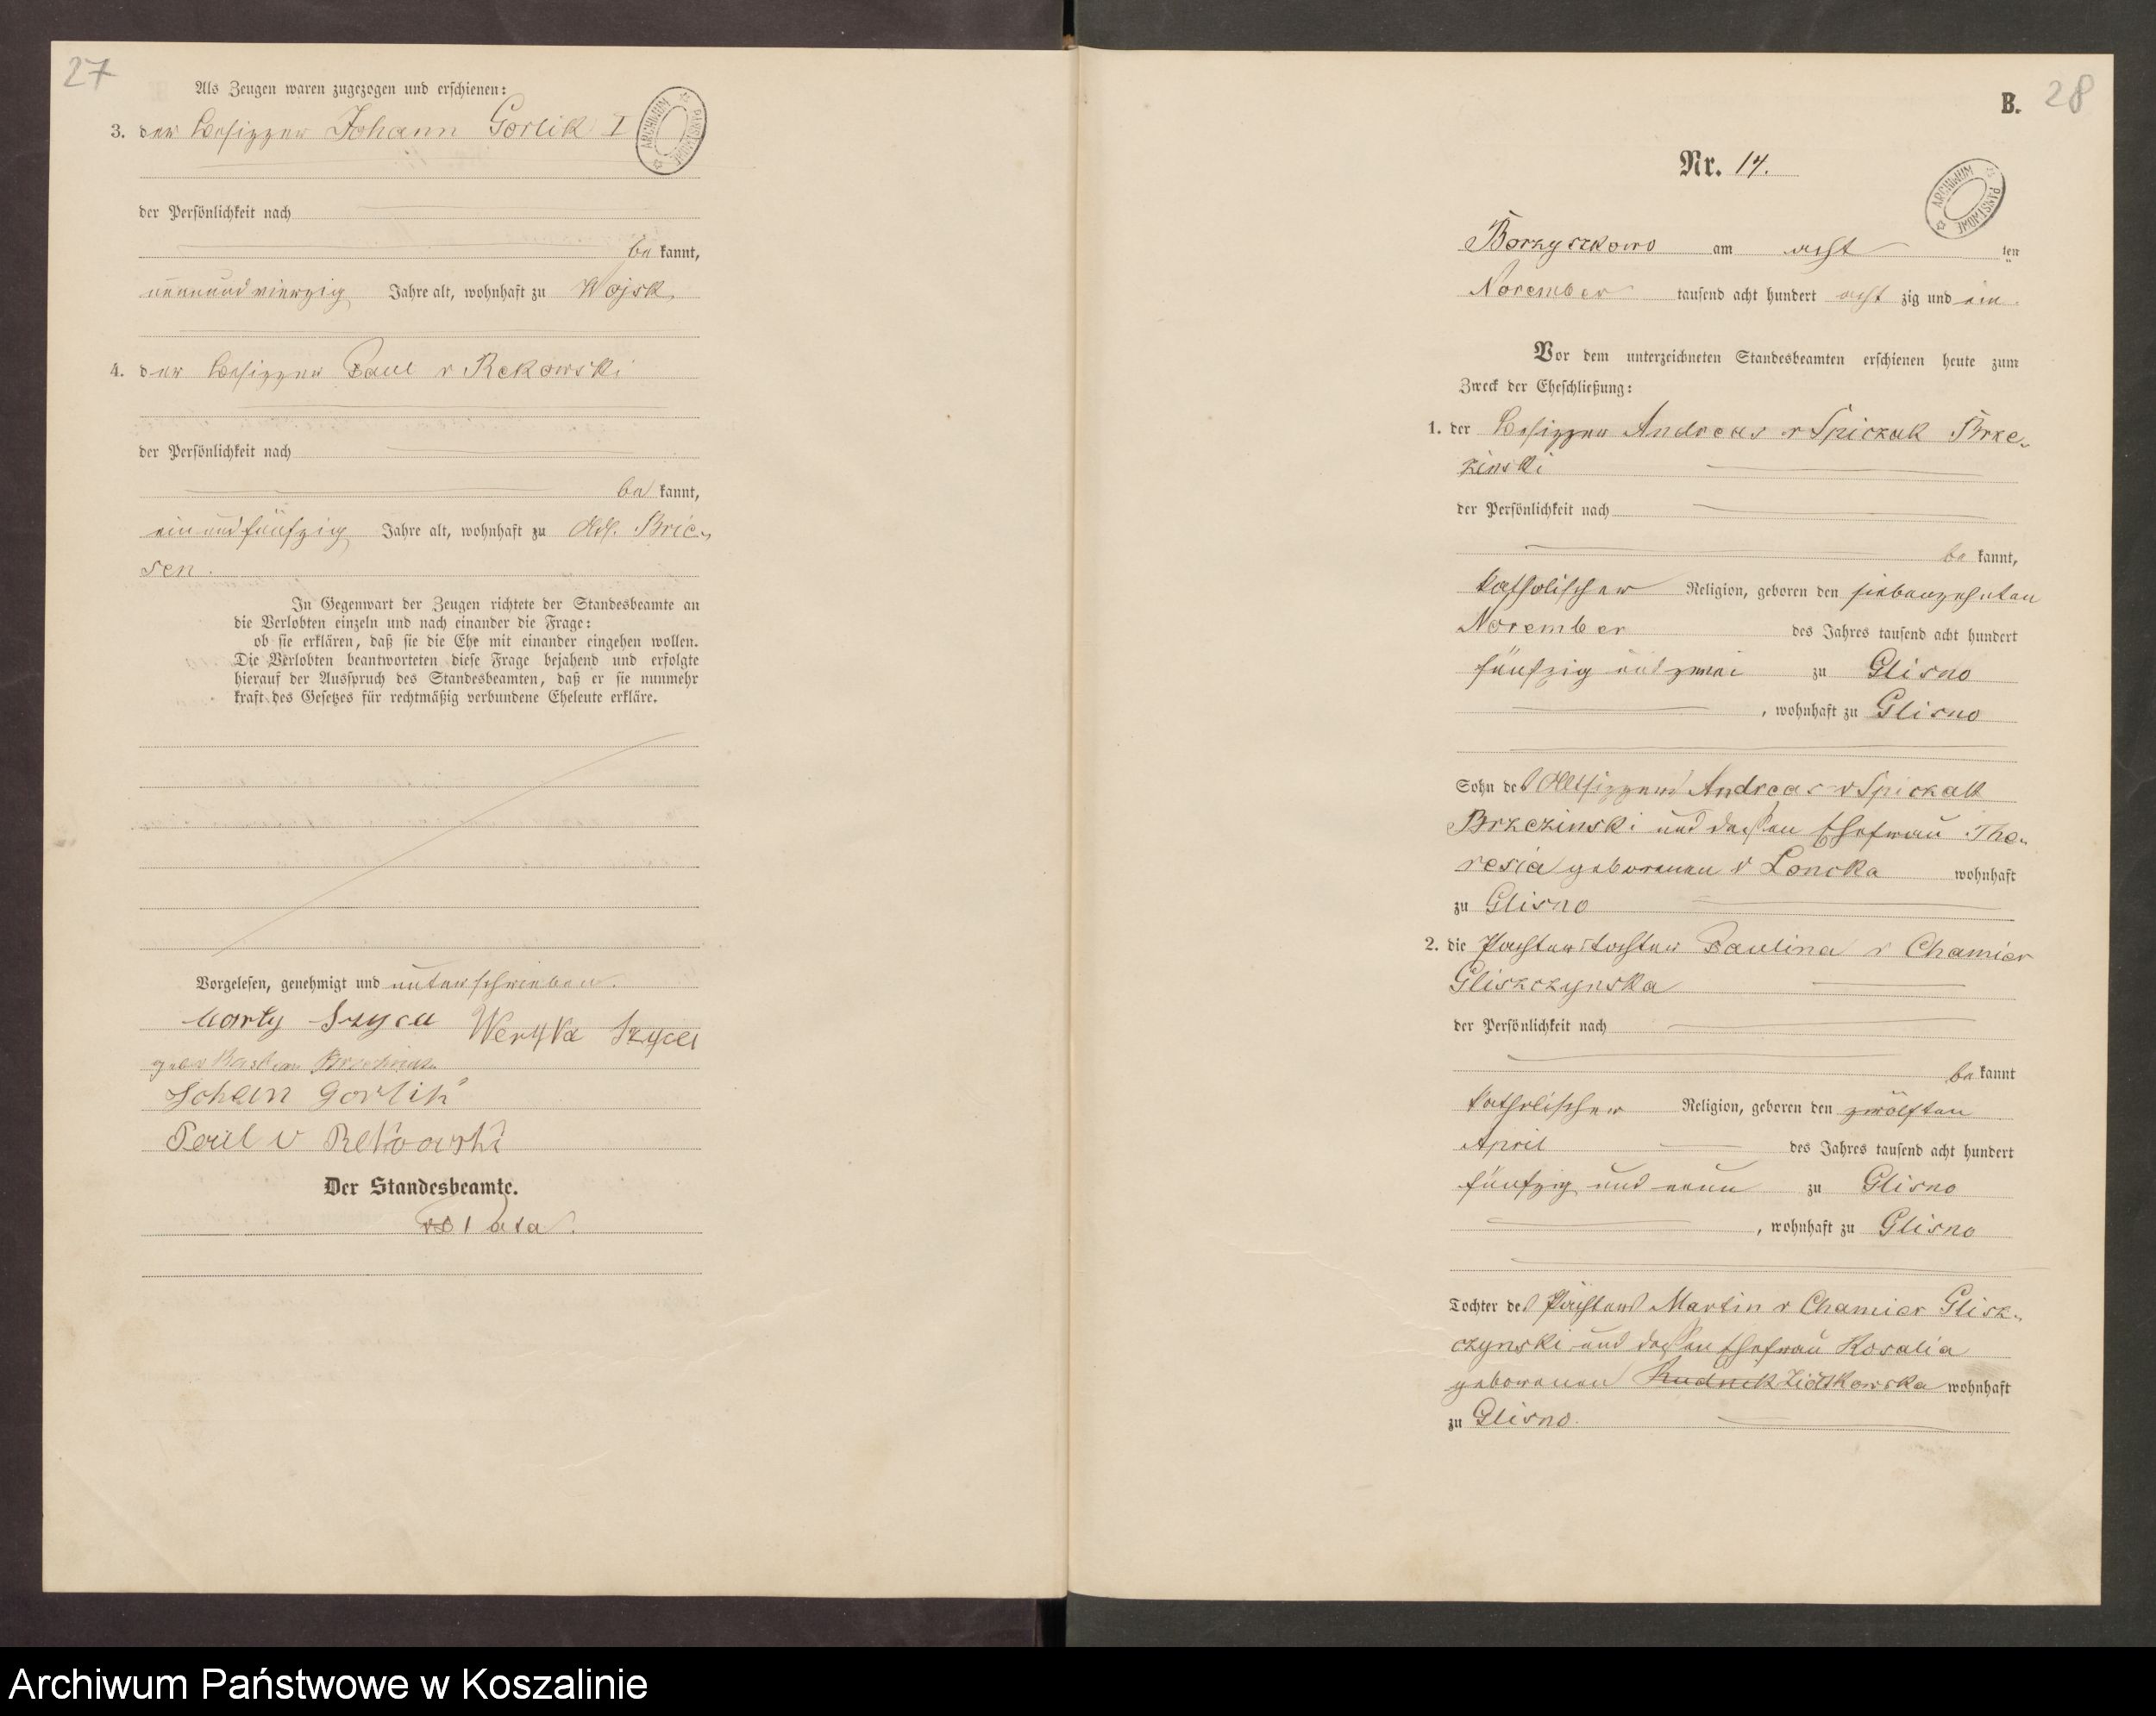 27
Als Zeugen waren zugezogen und erschienen:
3. der Besitzer Johann Gorlik I
ARCHIWUM PAŃSTWOWE
der Persönlichkeit nach
be kannt,
neunundvierzig Jahre alt, wohnhaft zu Wojsk
4. der Besitzer Paul v Rekowski
der Persönlichkeit nach
be kannt,
einundfünfzig Jahre alt, wohnhaft zu Adl. Brie-
sen.
In Gegenwart der Zeugen richtete der Standesbeamte an
die Verlobten einzeln und nach einander die Frage:
ob sie erklären, daß sie die Ehe mit einander eingehen wollen.
Die Verlobten beantworteten diese Frage bejahend und erfolgte
hierauf der Ausspruch des Standesbeamten, daß er sie nunmehr
kraft des Gesetzes für rechtmäßig verbundene Eheleute erkläre.
Vorgelesen, genehmigt und unterschrieben.
Szyca
Johan Gorlik
Paul v Rekowski
Der Standesbeamte.
B. 28
Nr. 14.
ARCHIWUM PAŃSTWOWE
Borzyszkowo am acht ten
November tausend acht hundert acht zig und ein.
Vor dem unterzeichneten Standesbeamten erschienen heute zum
Zweck der Eheschließung:
1. der Besitzer Andreas v Spiczak Brze-
zinski
der Persönlichkeit nach
be kannt,
katholischer Religion, geboren den siebenzehnten
November des Jahres tausend acht hundert
fünfzig und zwei zu Glisno
, wohnhaft zu Glisno
Sohn des Altsitzers Andreas v Spiczak
Brzezinski und dessen Ehefrau The-
resia geborenen v Loncka wohnhaft
zu Glisno
2. die Pächterstochter Paulina v Chamier
Gliszczynska
der Persönlichkeit nach
be kannt
katholischer Religion, geboren den zwölften
April des Jahres tausend acht hundert
fünfzig und neun zu Glisno
, wohnhaft zu Glisno
Tochter des Pächters Martin v Chamier Glisz-
czynski und dessen Ehefrau Rosalia
geborenen wohnhaft
zu Glisno.
Archiwum Państwowe w Koszalinie